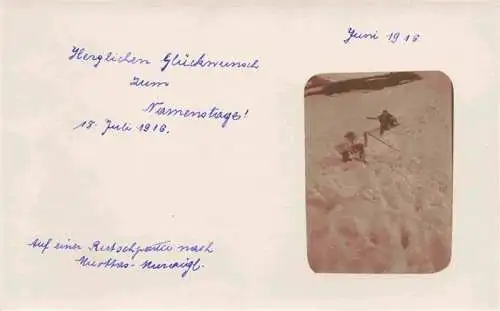 Juni 1916
Herzlichen Glückwunsch
zum
Namenstage!
15. Juli 1916.
Auf einer Rutschpartie nach